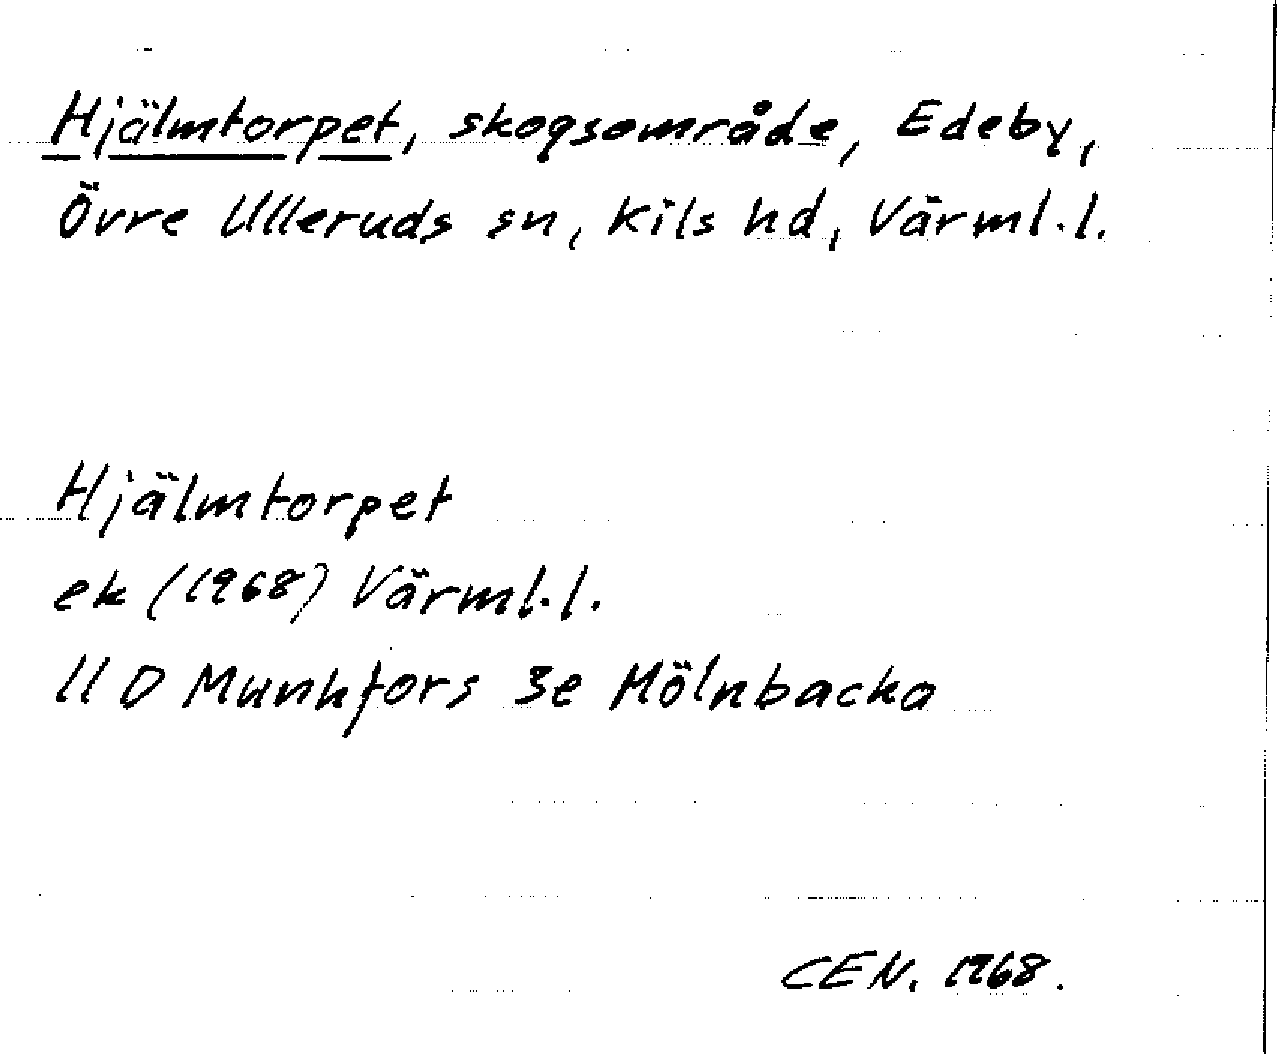 Hjälmtorpet, skogsområde, Edeby,
Övre Ulleruds sn, Kils hd, Värml.l.
Hjälmtorpet
ek (1968) Värml.l.
11 D Munkfors 3e Mölnbacka
CEN. 1968.